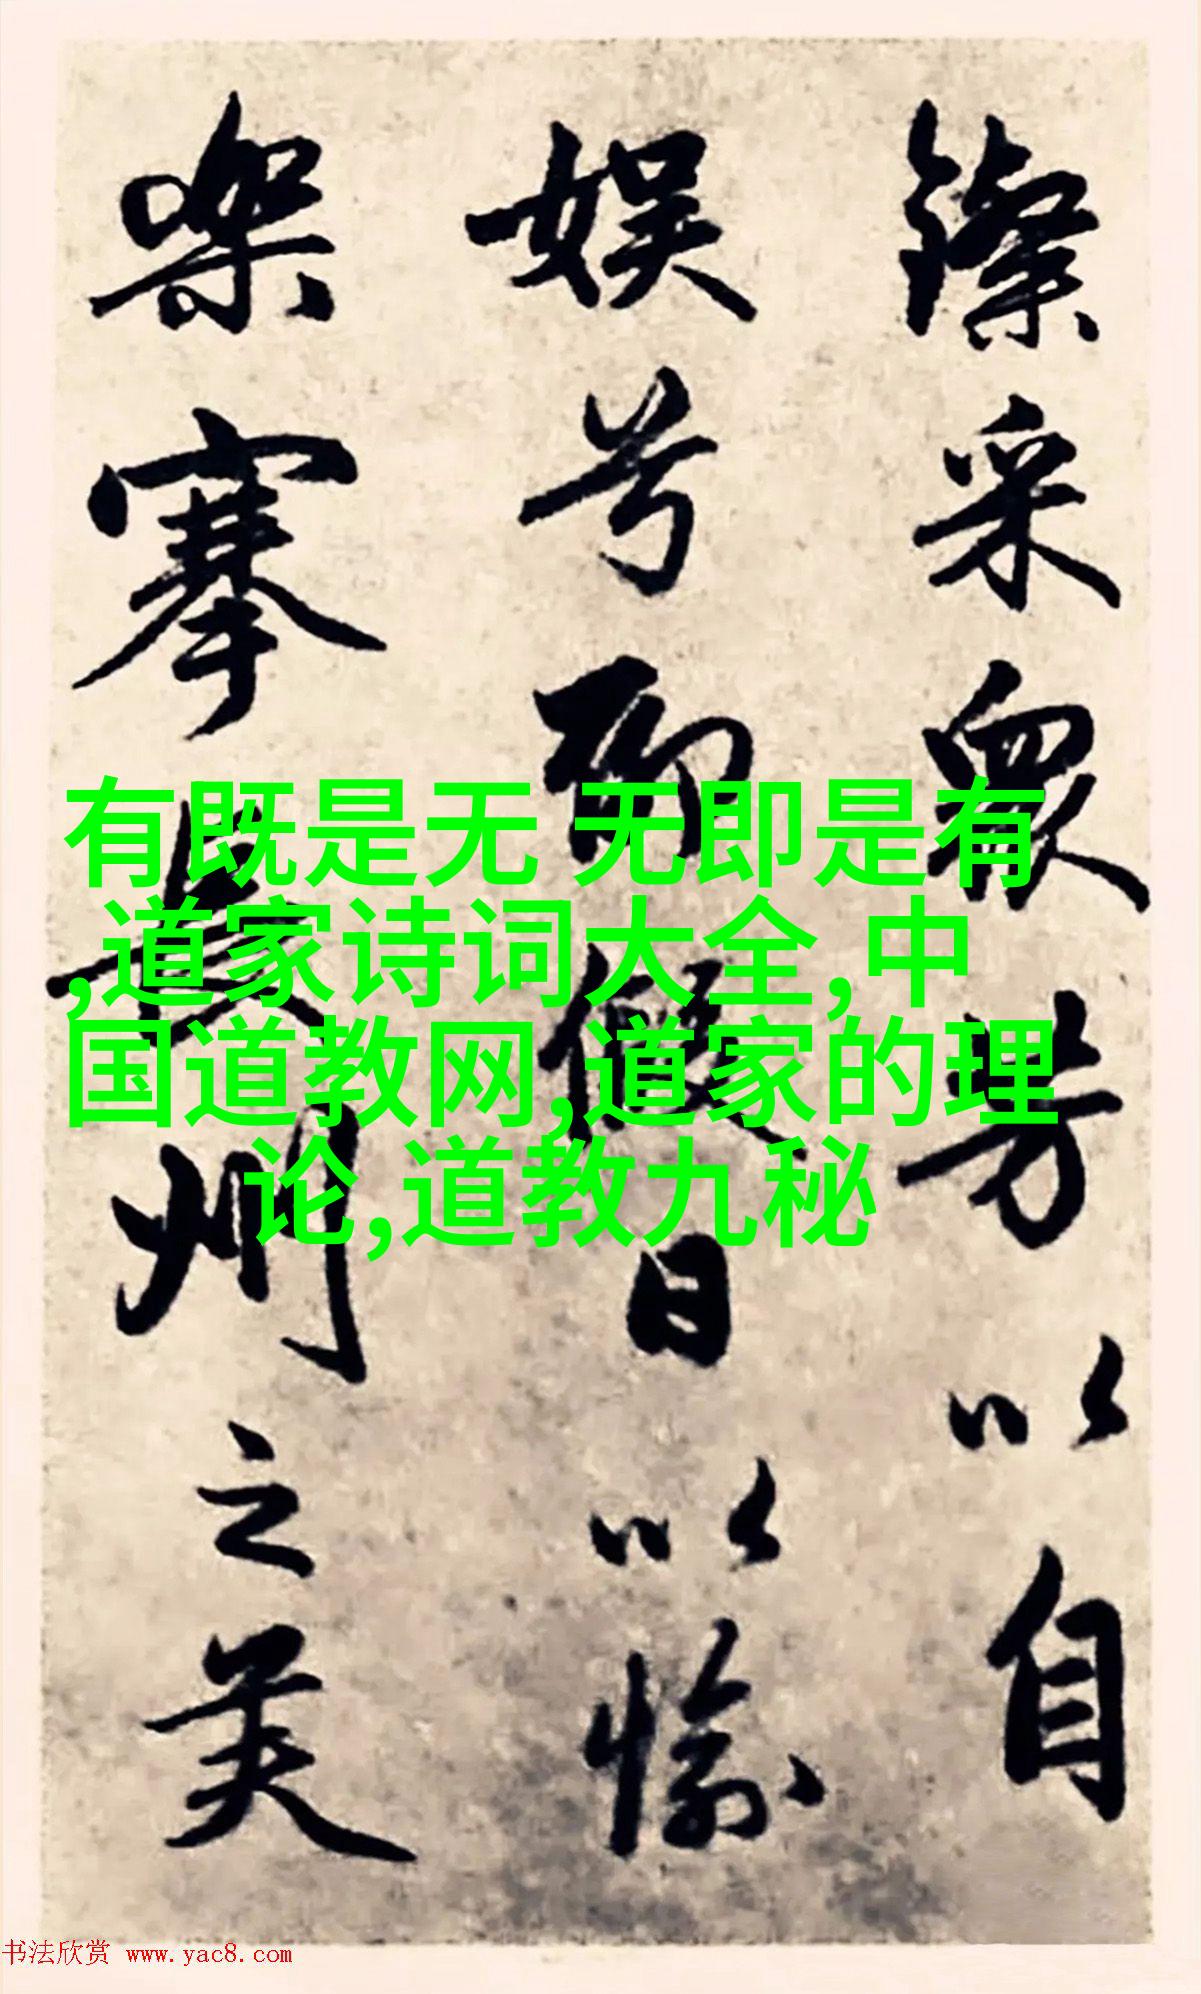 采眾芳以自
娱兮而假日以愉
樂搴長州之
有既是无 无即是有
,道家诗词大全,中
国道教网,道家的理
论,道教九秘
书法欣赏 www.yac8.com